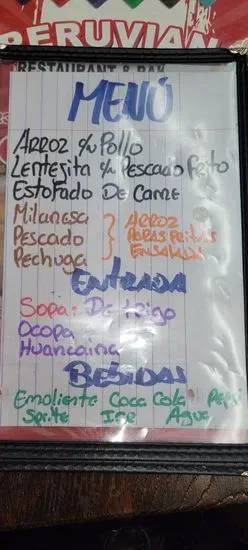 PERUVIAN
RESTAURANT & BAR
MENÚ
ARROZ c/ Pollo
Lentejita c/ Pescado Frito
Estofado De Carne
Milanesa
Pescado
Pechuga
ARROZ
PAPAS FRITAS
ENSALADA
ENTRADA
Sopa: De trigo
Ocopa
Huancaina
BEBIDAS
Emoliente Coca Cola Pepsi
Sprite Ice Agua